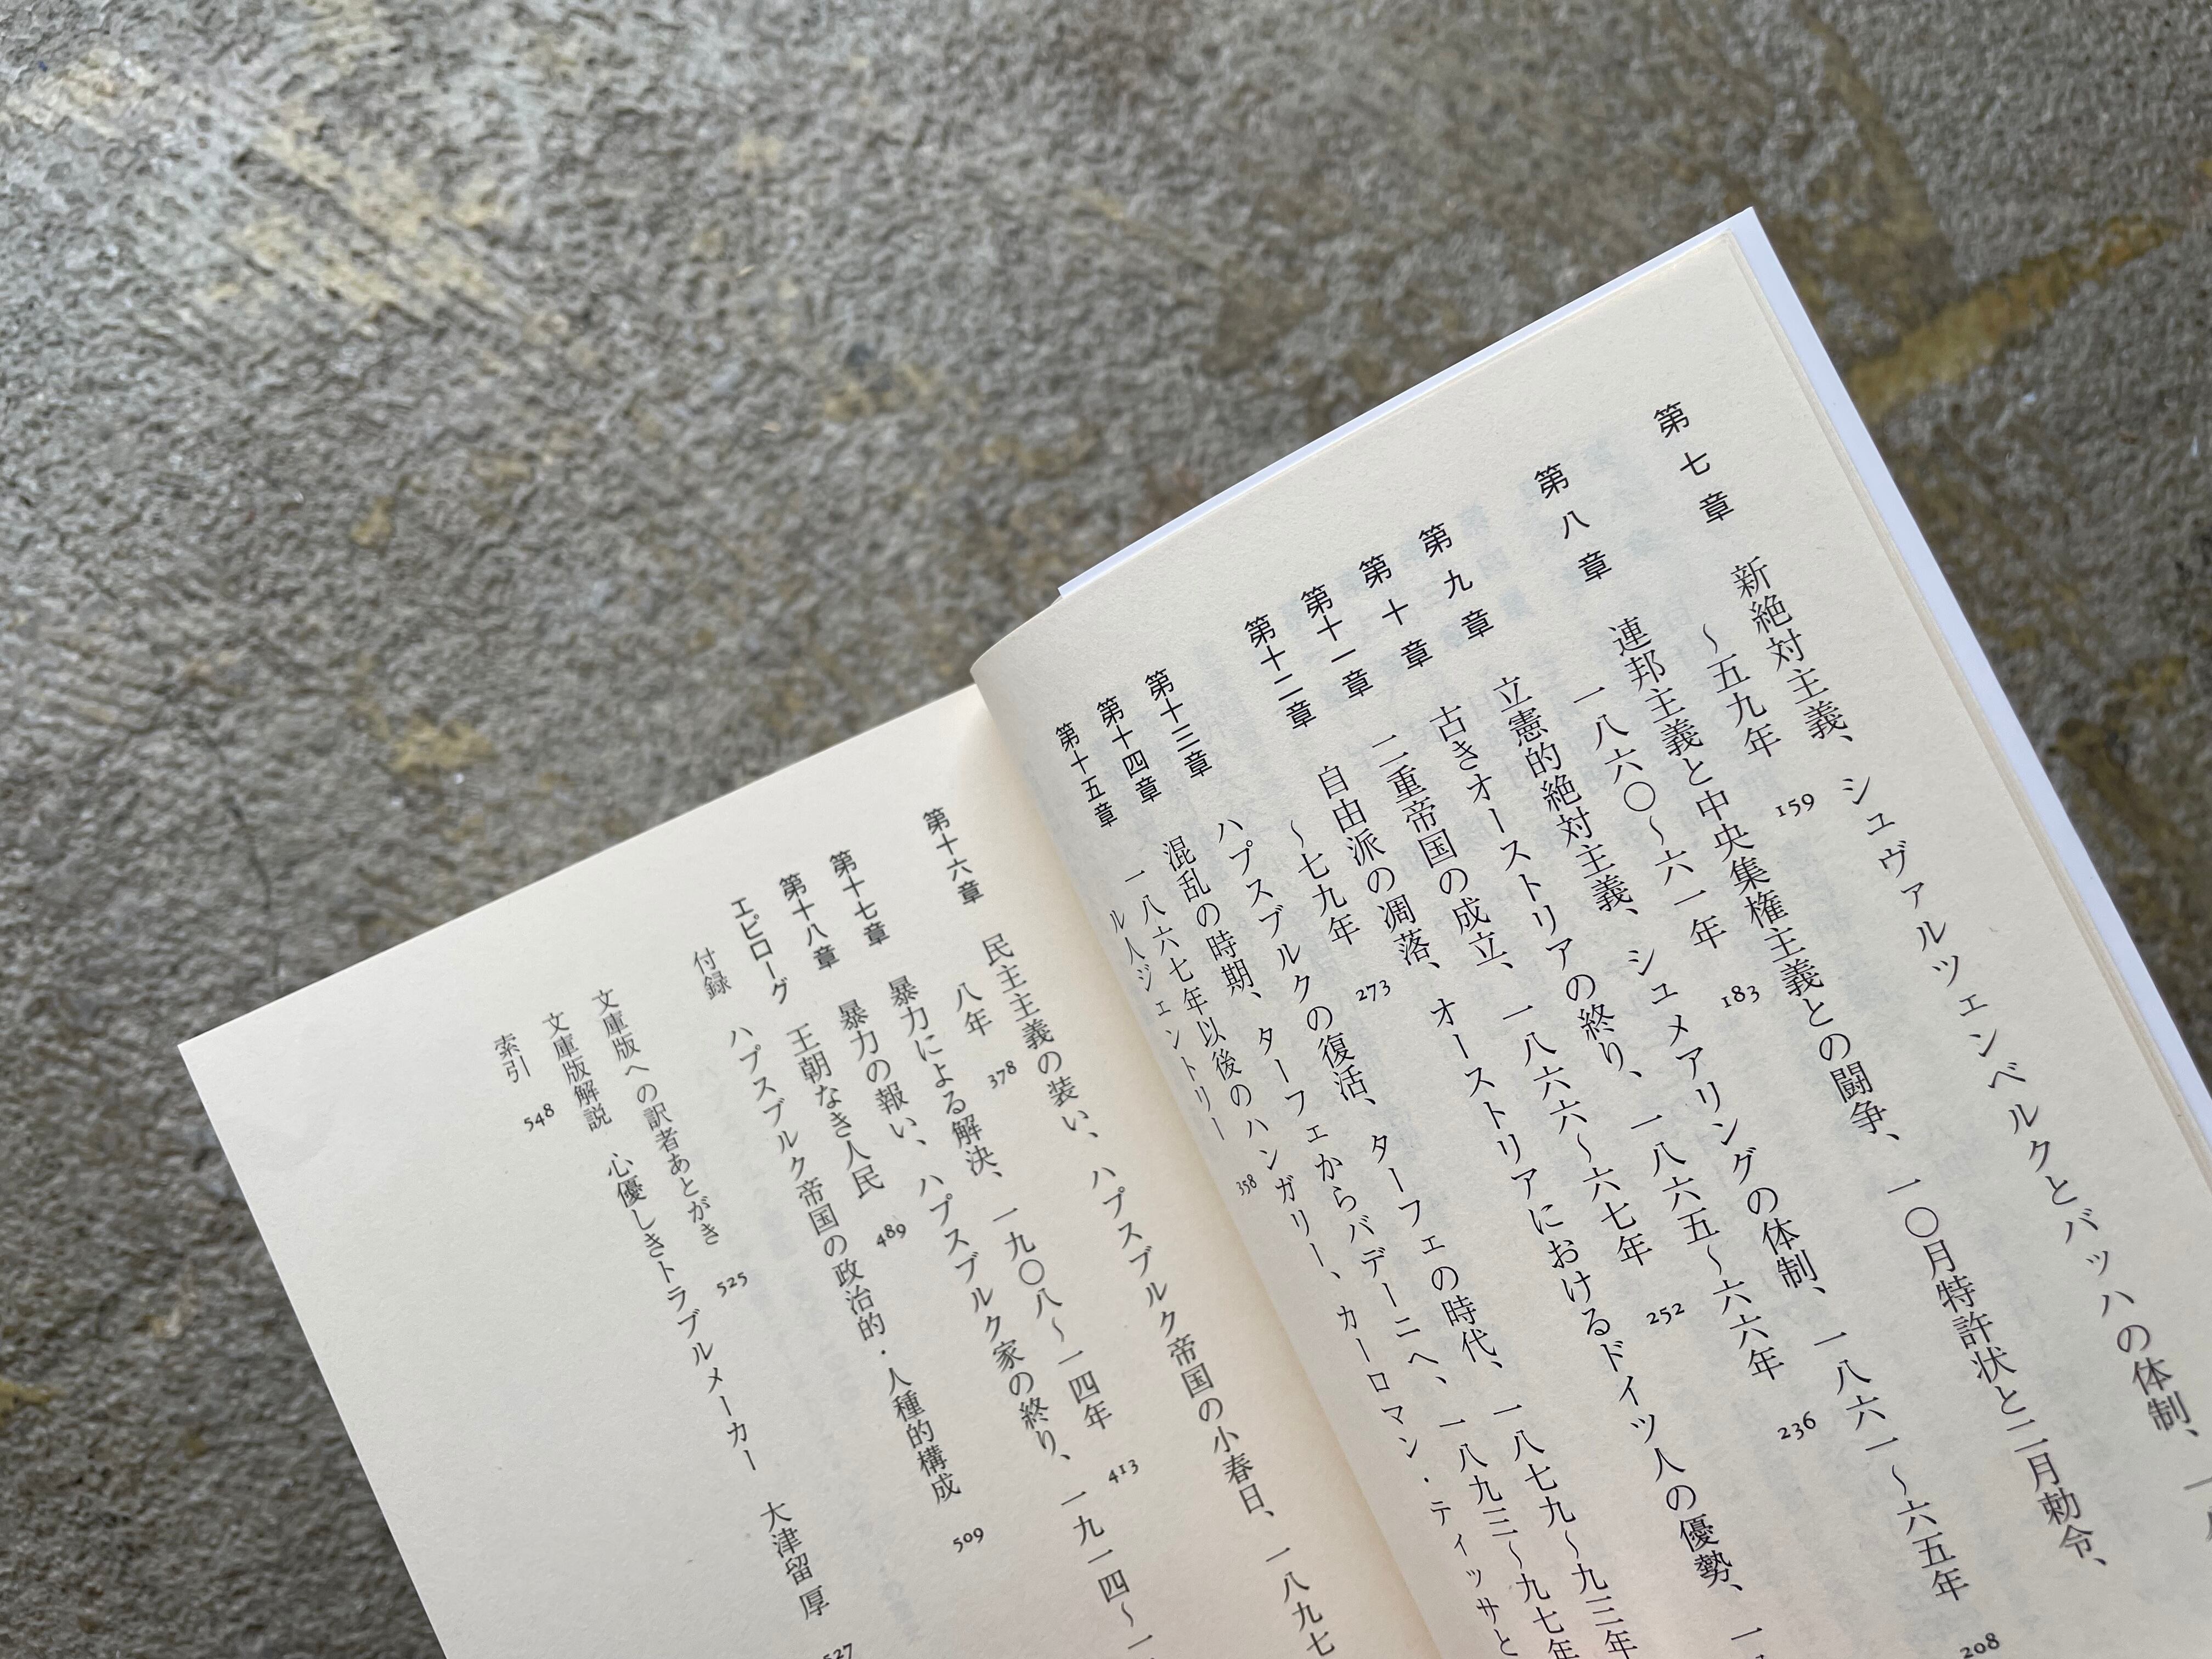 第七章 新絶対主義、シュヴァルツェンベルクとバッハの体制、一八
〜五九年 159
第八章 連邦主義と中央集権主義との闘争、一〇月特許状と二月勅令、
一八六〇〜六一年 183
第九章 立憲的絶対主義、シュメアリングの体制、一八六一〜六五年 208
第十章 古きオーストリアの終り、一八六五〜六六年 236
第十一章 二重帝国の成立、一八六六〜六七年 252
第十二章 自由派の凋落、オーストリアにおけるドイツ人の優勢、一
〜七九年 273
第十三章 ハプスブルクの復活、ターフェの時代、一八七九〜九三年
第十四章 混乱の時期、ターフェからバデーニへ、一八九三〜九七年
第十五章 一八六七年以後のハンガリー、カーロマン・ティッサと
ル人ジェントリー 358
第十六章 民主主義の装い、ハプスブルク帝国の小春日、一八九七
八年 378
第十七章 暴力による解決、一九〇八〜一四年 413
第十八章 暴力の報い、ハプスブルク家の終り、一九一四〜一
エピローグ 王朝なき人民 489
付録 ハプスブルク帝国の政治的・人種的構成 509
文庫版への訳者あとがき 525
文庫版解説 心優しきトラブルメーカー 大津留厚 527
索引 548